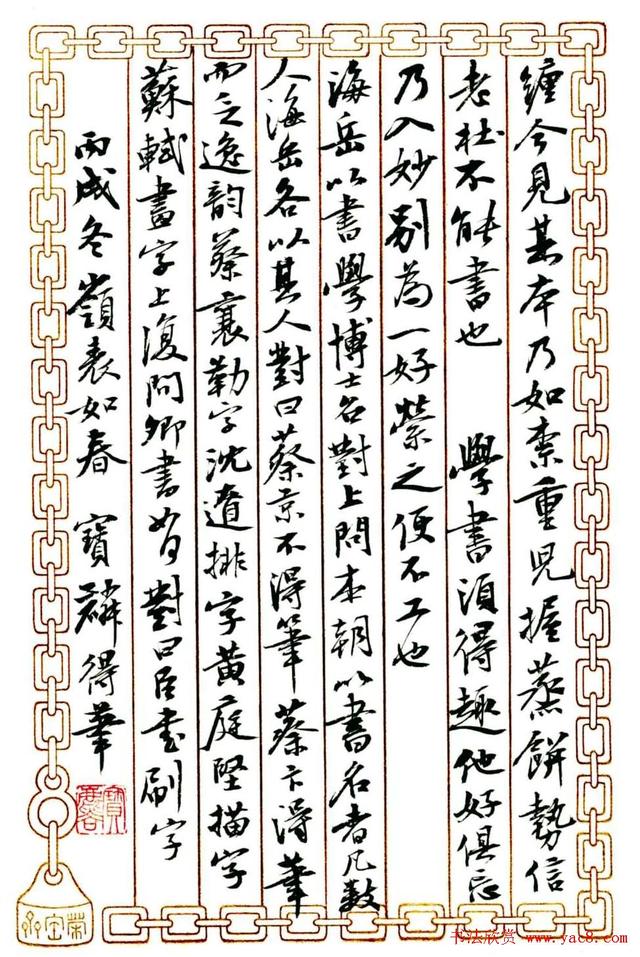 纏今見其本乃如柰重兒握蒸餅勢信
老杜不能書也 學書須得趣他好俱忘
乃入妙別為一好縈之便不工也
海岳以書學博士召對上問本朝以書名者凡數
人海岳各以其人對曰蔡京不得筆蔡卞得筆
而乏逸韵蔡襄勒字沈遼排字黃庭堅描字
蘇軾畫字上復問卿書如何對曰臣書刷字
丙戌冬嶺表如春 寶麟得筆
书法欣赏 www.yac8.com